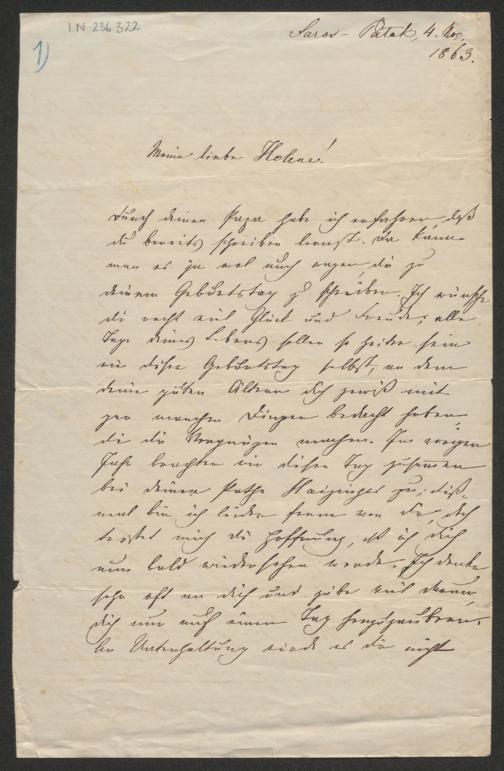 IN 236322
1)
Saros-Patak, 4. Nov.
1863.
Meine liebe Helene!
Durch deinen Papa habe ich erfahren, daß
du bereits schreiben lernst. Da kann
man es ja wol auch wagen, dir zu
deinem Geburtstag zu schreiben. Ich wünsche
dir recht viel Glück und Freude; alle
Tage deines Lebens sollen so heiter sein
wie dieser Geburtstag selbst, an dem
deine guten Ältern dich gewiß mit
gar manchen Dingen bedacht haben,
die dir Vergnügen machen. Im vorigen
Jahr brachten wir diesen Tag zusammen
bei deiner Pathe Haizinger zu; dieß-
mal bin ich leider fern von dir, doch
tröstet mich die Hoffnung, daß ich dich
nun bald wiedersehen werde. Ich denke
sehr oft an dich und gäbe viel darum,
dich nur auf einen Tag herzuzaubern.
An Unterhaltung würde es dir nicht